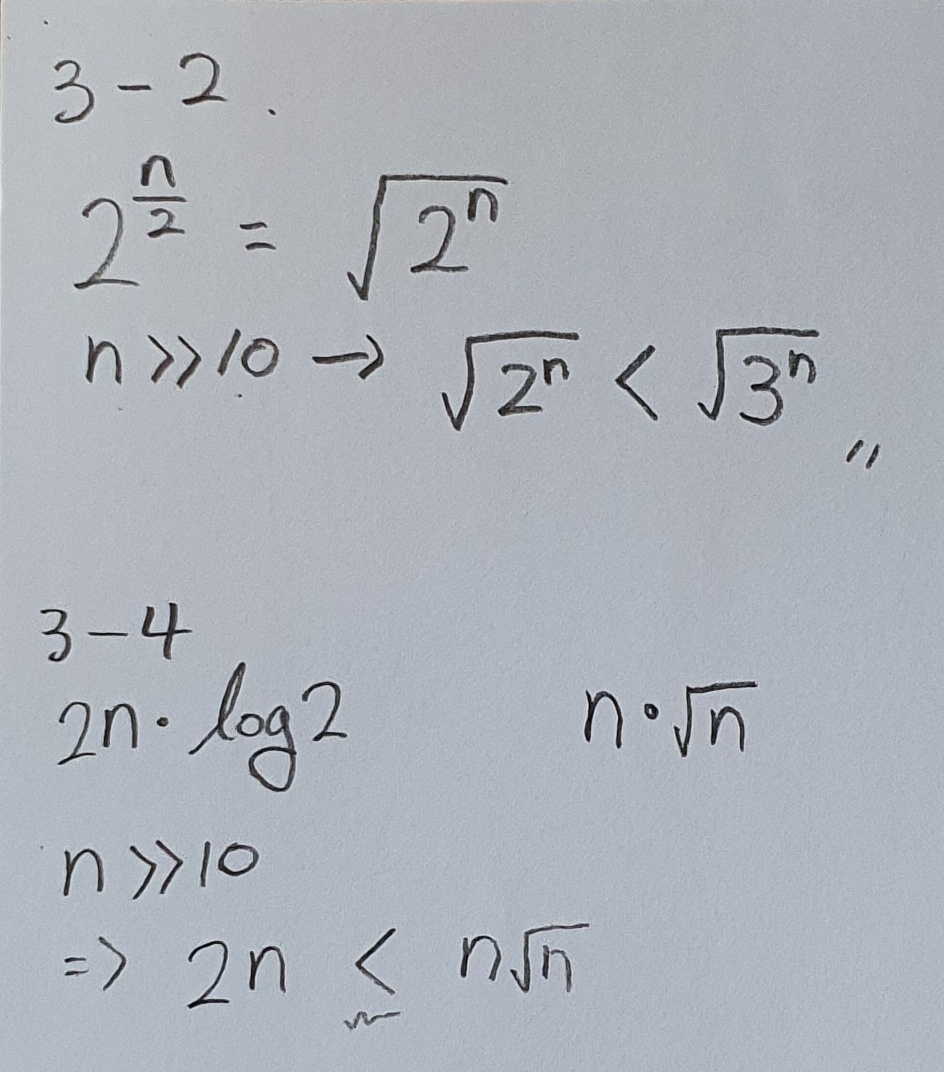 3-2.
2^{n/2} = √(2ⁿ)
n >>> 10 → √(2ⁿ) < √(3ⁿ) 〃
3-4
2n· log2 n·√n
n >>> 10
=> 2n < n√n